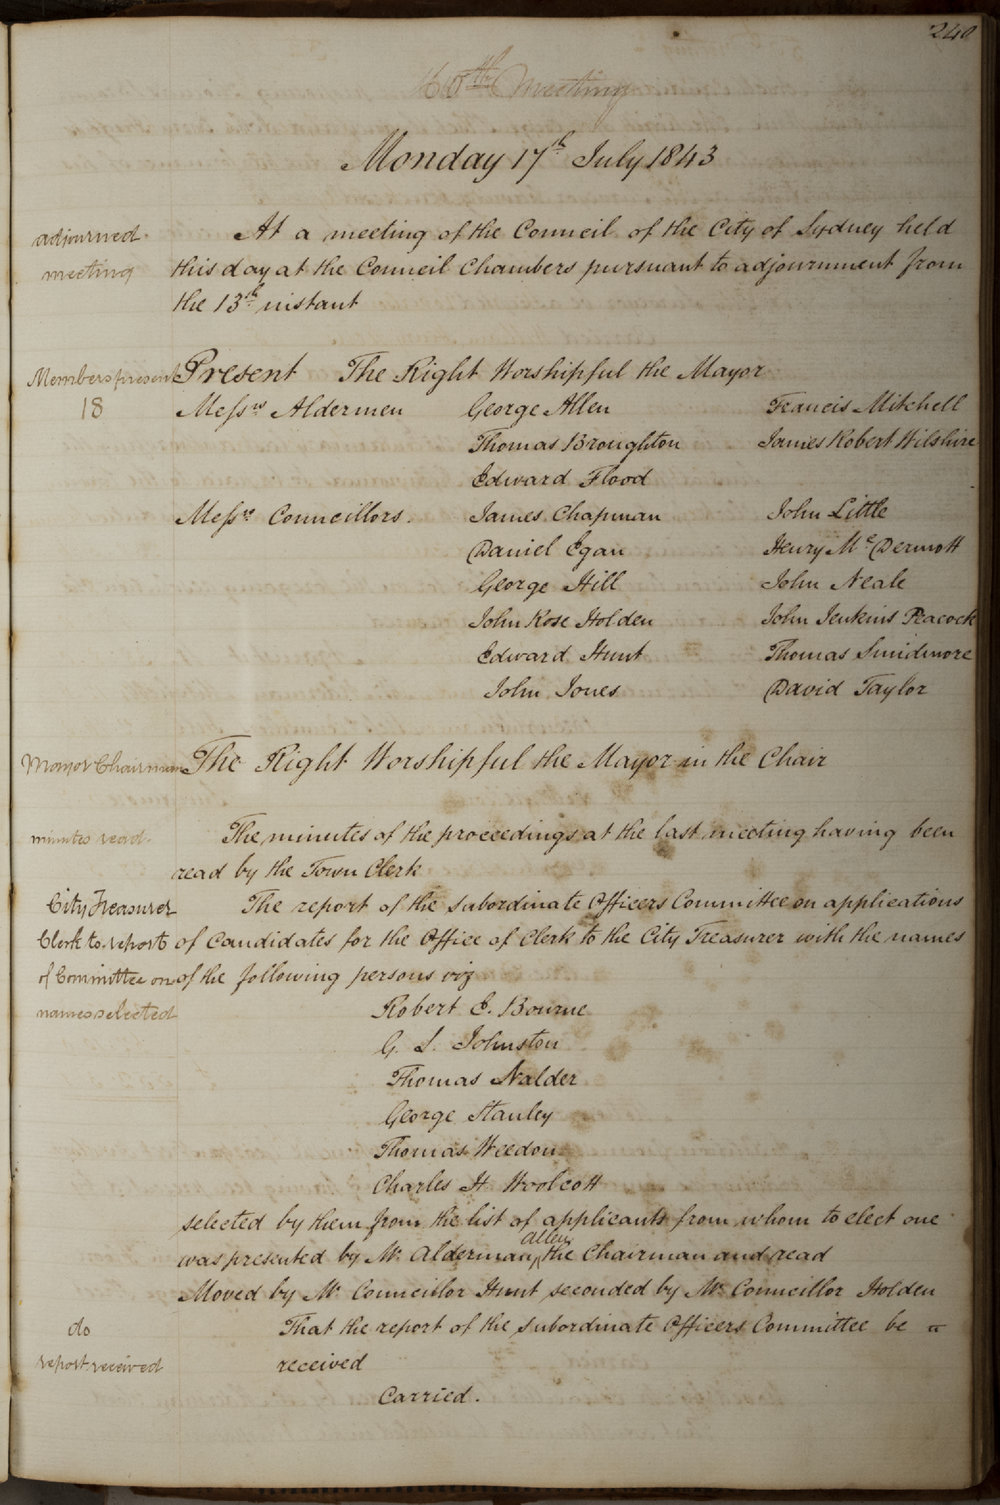 240
60th Meeting
Monday 17th July 1843
adjourned meeting
At a meeting of the Council of the City of Sydney held
this day at the Council Chambers pursuant to adjournment from
the 13th instant
Members present 18
Present The Right Worshipful the Mayor
Messrs Aldermen George Allen Francis Mitchell
Thomas Broughton James Robert Wilshire
Edward Flood
Messrs Councillors. James Chapman John Little
Daniel Egan Henry McDermott
George Hill John Neale
John Rose Holden John Jenkins Peacock
Edward Hunt Thomas Smidmore
John Jones David Taylor
Mayor Chairman
The Right Worshipful the Mayor in the Chair
minutes read.
The minutes of the proceedings at the last meeting having been
read by the Town Clerk
City Treasurer
Clerk to report
of Committee on
names selected
The report of the Subordinate Officers Committee on applications
of Candidates for the Office of Clerk to the City Treasurer with the names
of the following persons viz
Robert E. Bourne
G. S. Johnston
Thomas Nalder
George Stanley
Thomas Weedon
Charles H Woolcott
selected by them from the list of applicants from whom to elect one
was presented by Mr Alderman Allen the Chairman and read
Moved by Mr Councillor Hunt seconded by Mr Councillor Holden
do
report received
That the report of the Subordinate Officers Committee be
received
Carried.